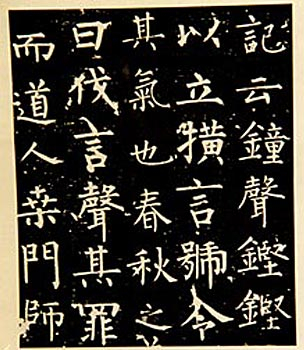 記云鐘聲鏗鏗
以立橫言號令
其氣也春秋之
曰伐言聲其罪
而道人桒門師